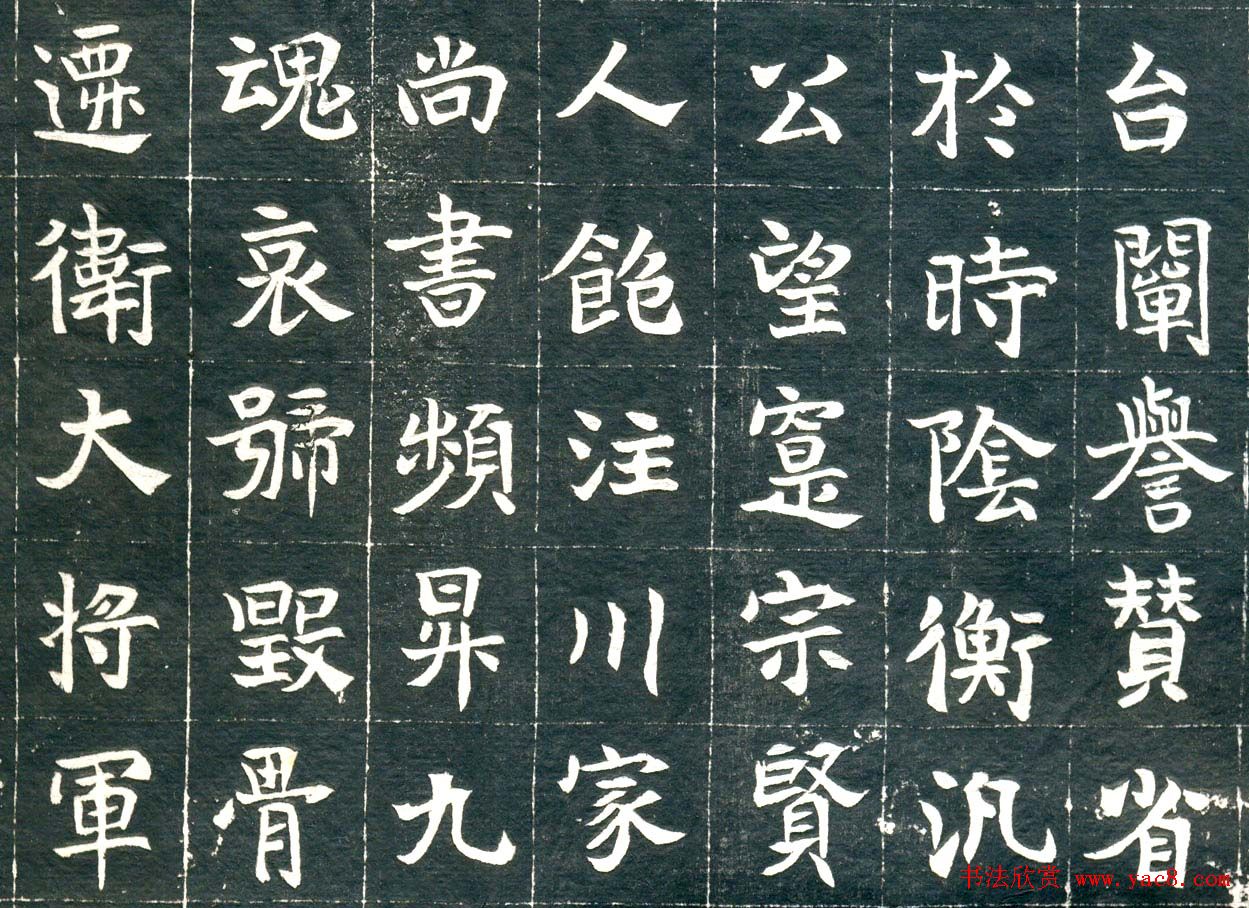 台闡譽賛省
於時陰衡汎
公望寔宗賢
人飽注川家
尚書頻昇九
魂哀號毀骨
遷衛大將軍
书法欣赏 www.yac8.com